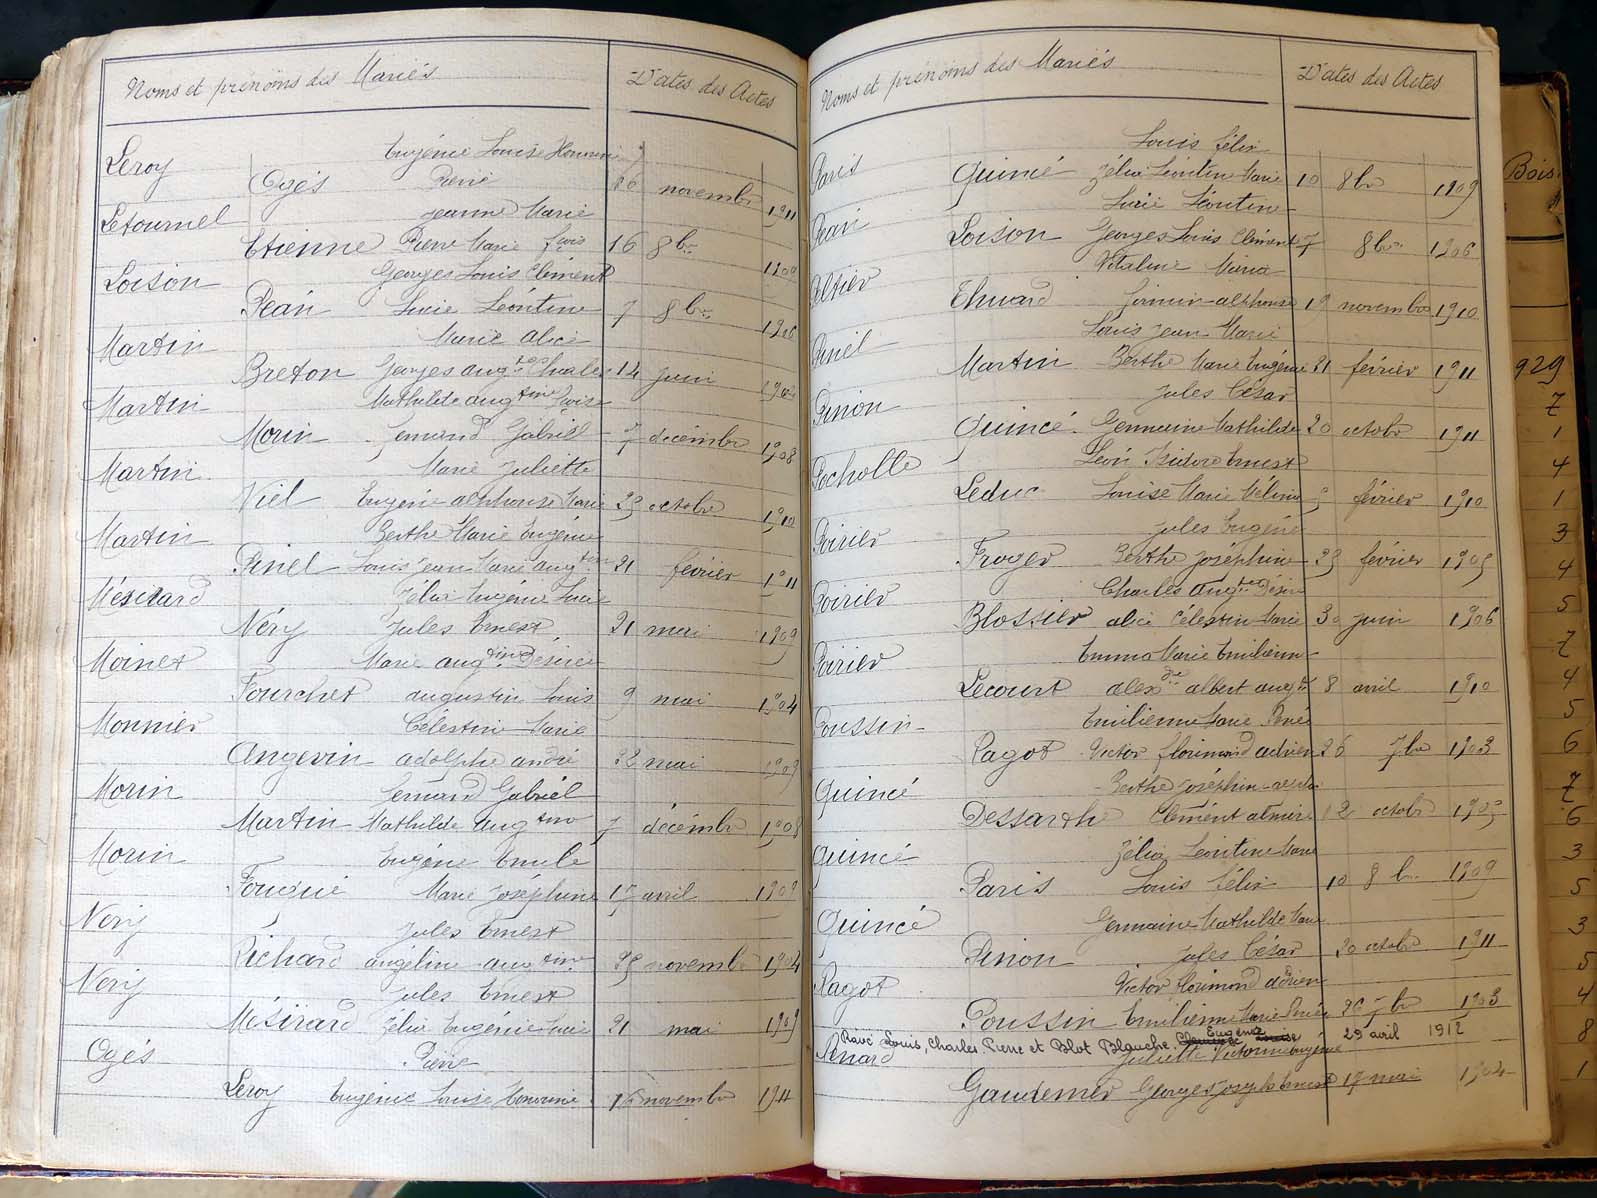 Noms et prénoms des Mariés Dates des Actes
Leroy Eugénie Louise Honorine
Ogés René 16 novembre 1911
Letournel Jeanne Marie
Etienne Pierre Marie 16 8bre
Loison Georges Louis Clément
Péan Lucie Léontine 7 8bre 1906
Martin Marie Alice
Breton Georges Augtes Charles 14 juin
Martin Mathilde Augtine
Morin Fernand Gabriel 7 décembre 1908
Martin Marie Juliette
Viel Eugène Alphonse Marie 29 octobre 1910
Martin Berthe Marie Eugénie
Pinel Louis Jean Marie Augtin 21 février 1911
Mésirard Zélia Eugénie Lucie
Néry Jules Ernest 21 mai 1909
Moinet Marie Augtine Désirée
Fourchet Augustin Louis 9 mai 1904
Monnier Célestin Marie
Angevin Adolphe André 22 mai 1909
Morin Fernand Gabriel
Martin Mathilde Augtine 7 décembre 1908
Morin Eugène Emile
Fouqué Marie Joséphine 17 avril 1909
Nery Jules Ernest
Richard Angéline Augtine 25 novembre 1904
Nery Jules Ernest
Mésirard Zélia Eugénie Lucie 21 mai 1909
Ogés René
Leroy Eugénie Louise Honorine 16 novembre 1911
Noms et prénoms des Mariés Dates des Actes
Paris Louis Félix
Quincé Zélia Léontine Marie 10 8bre 1909
Péan Lucie Léontine
Loison Georges Louis Clément 7 8bre 1906
Vitaline Maria
Ehuard Firmin Alphonse 19 novembre 1910
Pinel Louis Jean Marie
Martin Berthe Marie Eugénie 21 février 1911
Pinon Jules César
Quincé Germaine Mathilde 20 octobre 1911
Pocholle Léon Isidore Ernest
Leduc Louise Marie Mélinie février 1910
Poirier Jules Eugène
Froger Berthe Joséphine 23 février 1905
Poirier Charles Augtes Désiré
Blossier Alice Célestin Marie 30 juin 1906
Poirier Emma Marie Emilienne
Lecourt Alexdre Albert Augte 8 avril 1910
Poussin Emilienne Marie Renée
Pagot Victor Florimond Adrien 26 7bre 1903
Quincé Berthe Joséphine
Dessarthe Clément 12 octobre
Quincé Zélia Léontine Marie
Paris Louis Félix 10 8bre 1909
Quincé Germaine Mathilde Marie
Pinon Jules César 20 octobre 1911
Pagot Victor Florimond Adrien
Poussin Emilienne Marie Renée 26 7bre 1903
Ravé Louis, Charles, Pierre et Blot Blanche Eugénie Louise 29 avril 1912
Renard Juliette Victorine Eugénie
Gaudemer Georges Joseph Ernest 17 mai 1904
Bois
929
7
1
4
1
3
4
5
7
4
5
6
7
6
3
5
3
5
4
8
1